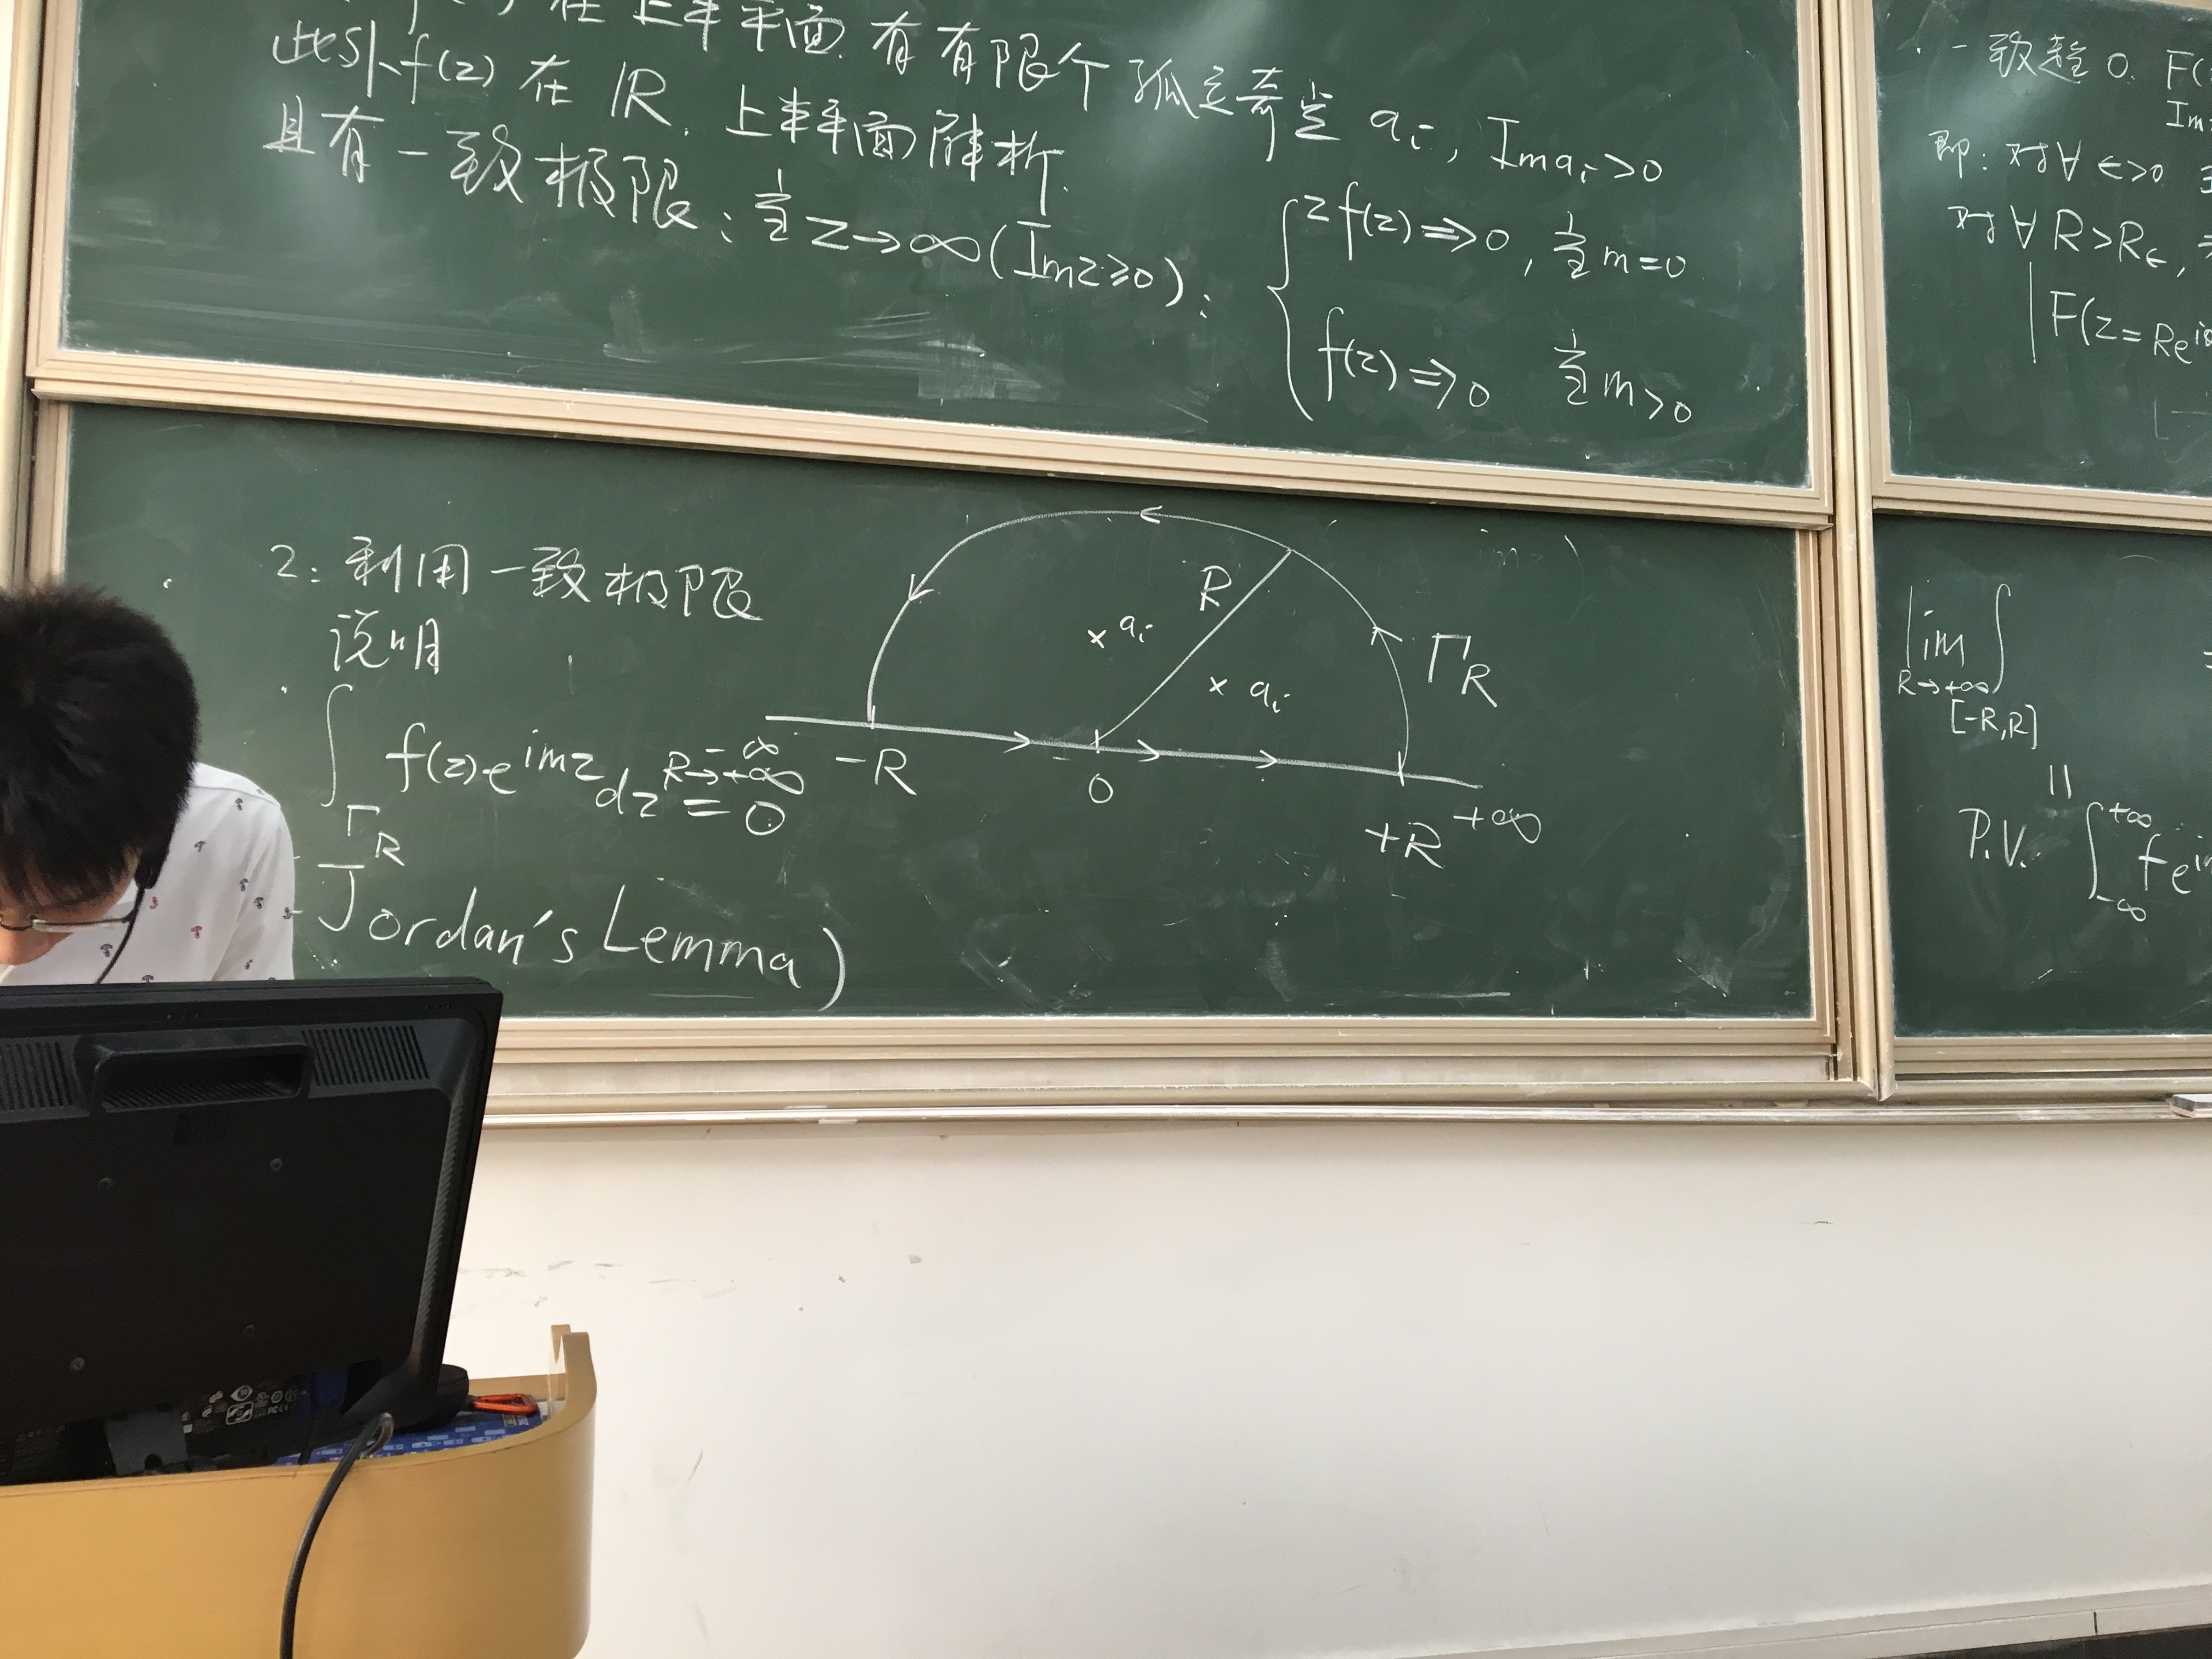 在上半平面有有限个孤立奇点 aᵢ, Im aᵢ>0
此外f(z)在 ℝ. 上半平面解析.
且有一致极限: 当z→∞(Imz≥0):
zf(z)⇒0, 当m=0
f(z)⇒0 当m>0
2: 利用一致极限
说明
∫_{Γ_R} f(z)e^{imz}dz =^{R→+∞} 0
Jordan's Lemma)
R
× aᵢ
× aᵢ
Γ_R
-∞
-R
0
+R
+∞
一致趋0. F(
Im
即: 对∀ϵ>0
对∀R>R_ϵ,
|F(z=Re^{i
lim_{R→+∞} ∫_{[-R,R]} =
||
P.V. ∫_{-∞}^{+∞} fe^{i